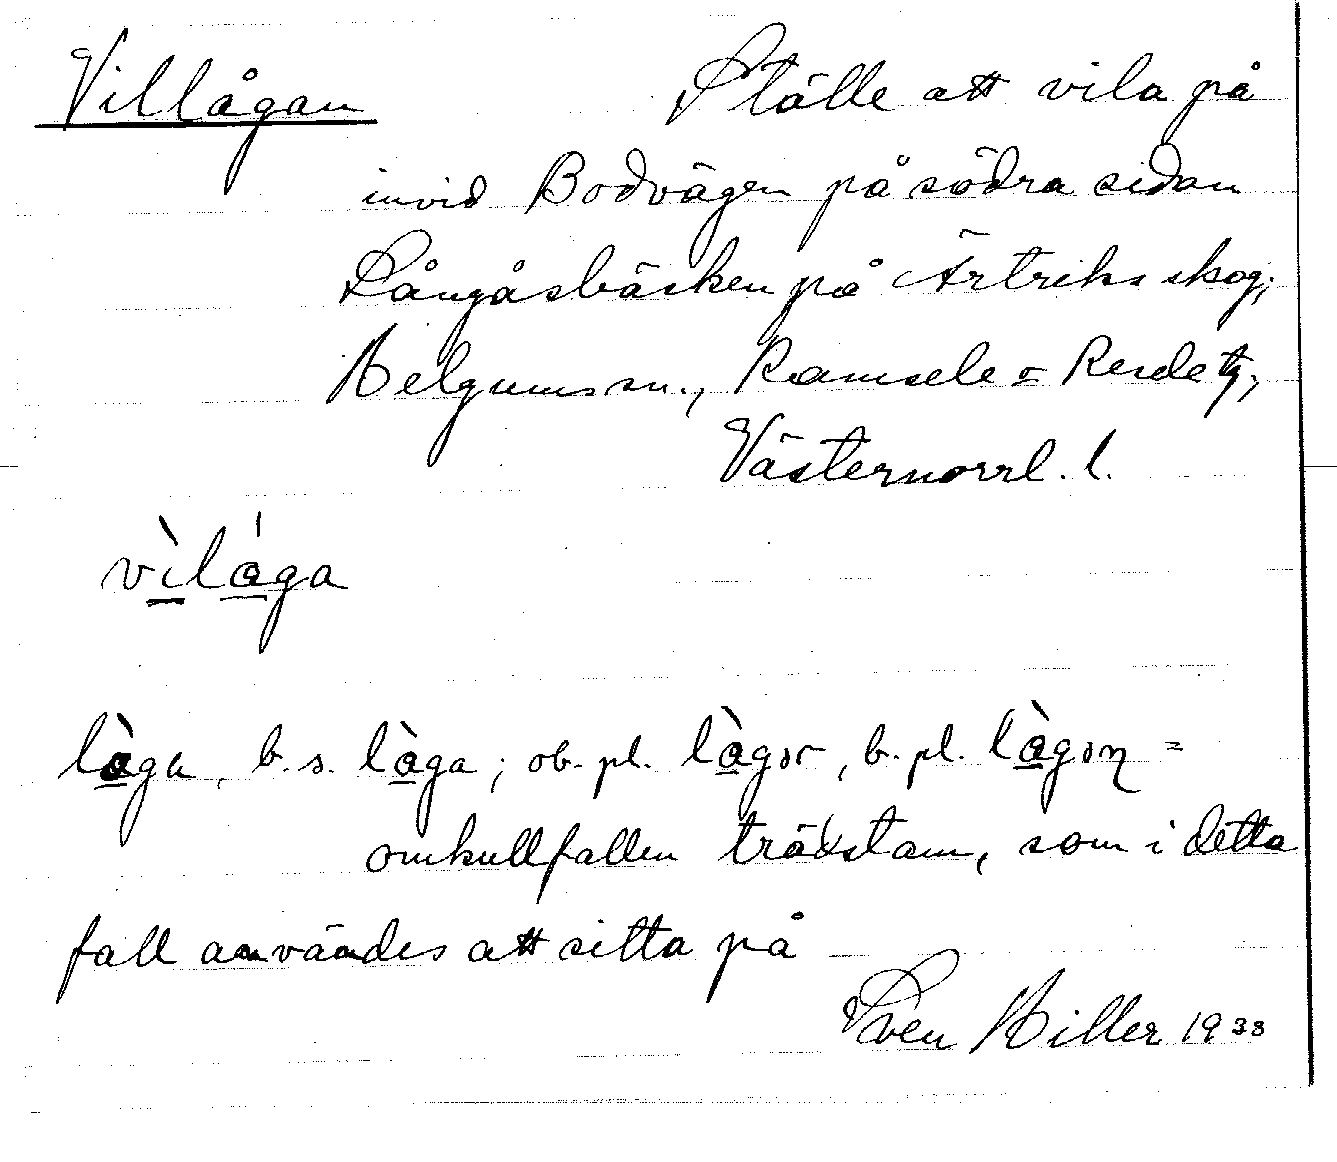 Villågan Ställe att vila på
invid Bodvägen på södra sidan
Långåsbäcken på Ärtriks skog;
Helgums sn., Ramsele o Resele tg;
Västernorrl. l.
vìlåga
làga, b. s. làga; ob. pl. làgər, b. pl. làgəɳ =
omkullfallen trädstam, som i detta
fall användes att sitta på —
Sven Hiller 1933